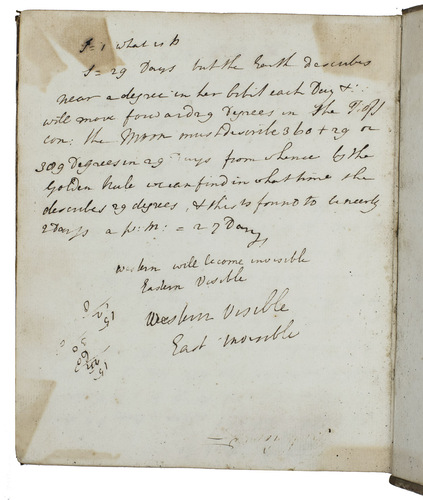 S = 1 what is p
S = 29 Days but the Earth describes
near a degree in her Orbit each Day &
will move forward 29 Degrees in
con: the Moon must describe 360 + 29 or
389 Degrees in 29 Days from whence by the
Golden Rule we can find in what time she
describes 29 degrees, & this is found to be nearly
2 Days a p: m: = 27 Days
Western will become invisible
Eastern Visible
Western Visible
East invisible